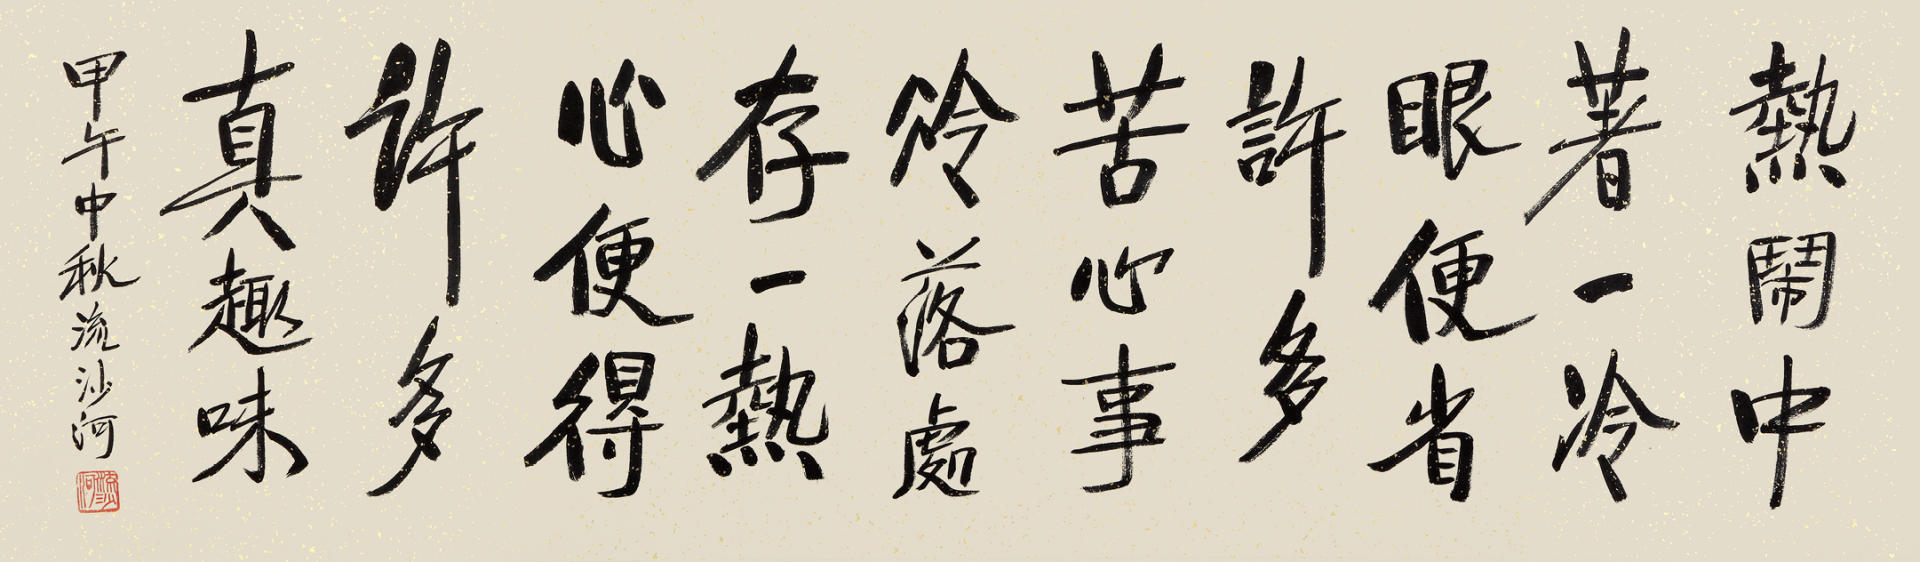 熱鬧中
著一冷
眼便省
許多
苦心事
冷落處
存一熱
心便得
許多
真趣味
甲午中秋流沙河
流沙河